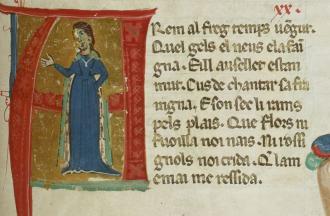 xx.
Rem al freg temps uẽgut.
Quel gels el neus e la fan
gna. Eill auselletz estan
mut. Cus de chantar sa fra
ingna. E son sec li ram
pels plais. Que flors ni
fuoilla noi nais. Ni rossi
gnols noi crida. Q̃ lam
e mai me ressida.